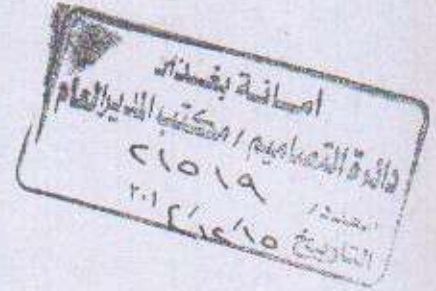 امانة بغداد
دائرة التصاميم / مكتب المدير العام
العدد / ٢١٥١٩
التاريخ ١٥ / ١٢ / ٢٠١٤